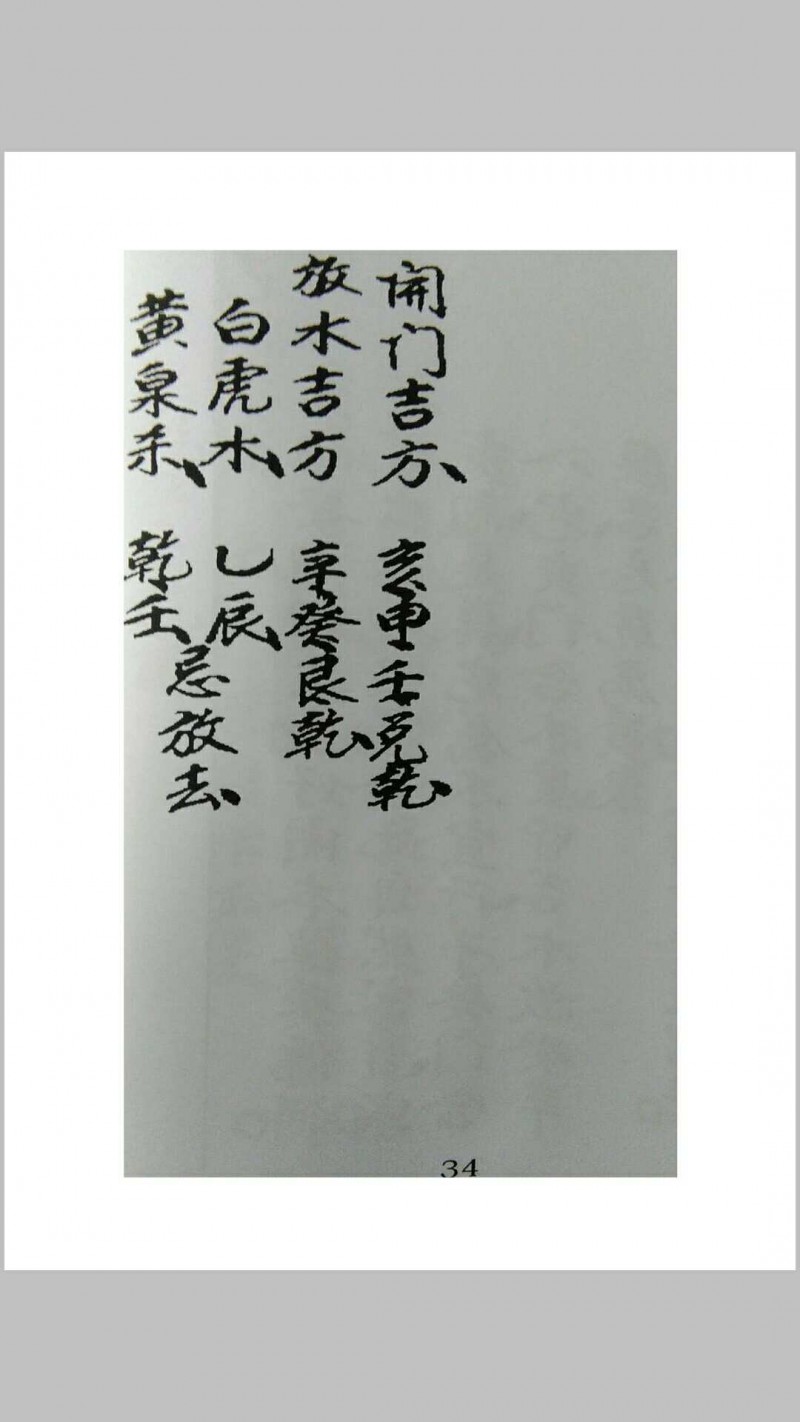 開门吉方、亥申壬兑乾、
放水吉方 辛癸艮乾、
白虎水、乙辰、
黄泉杀、乾壬、
忌放去、
34